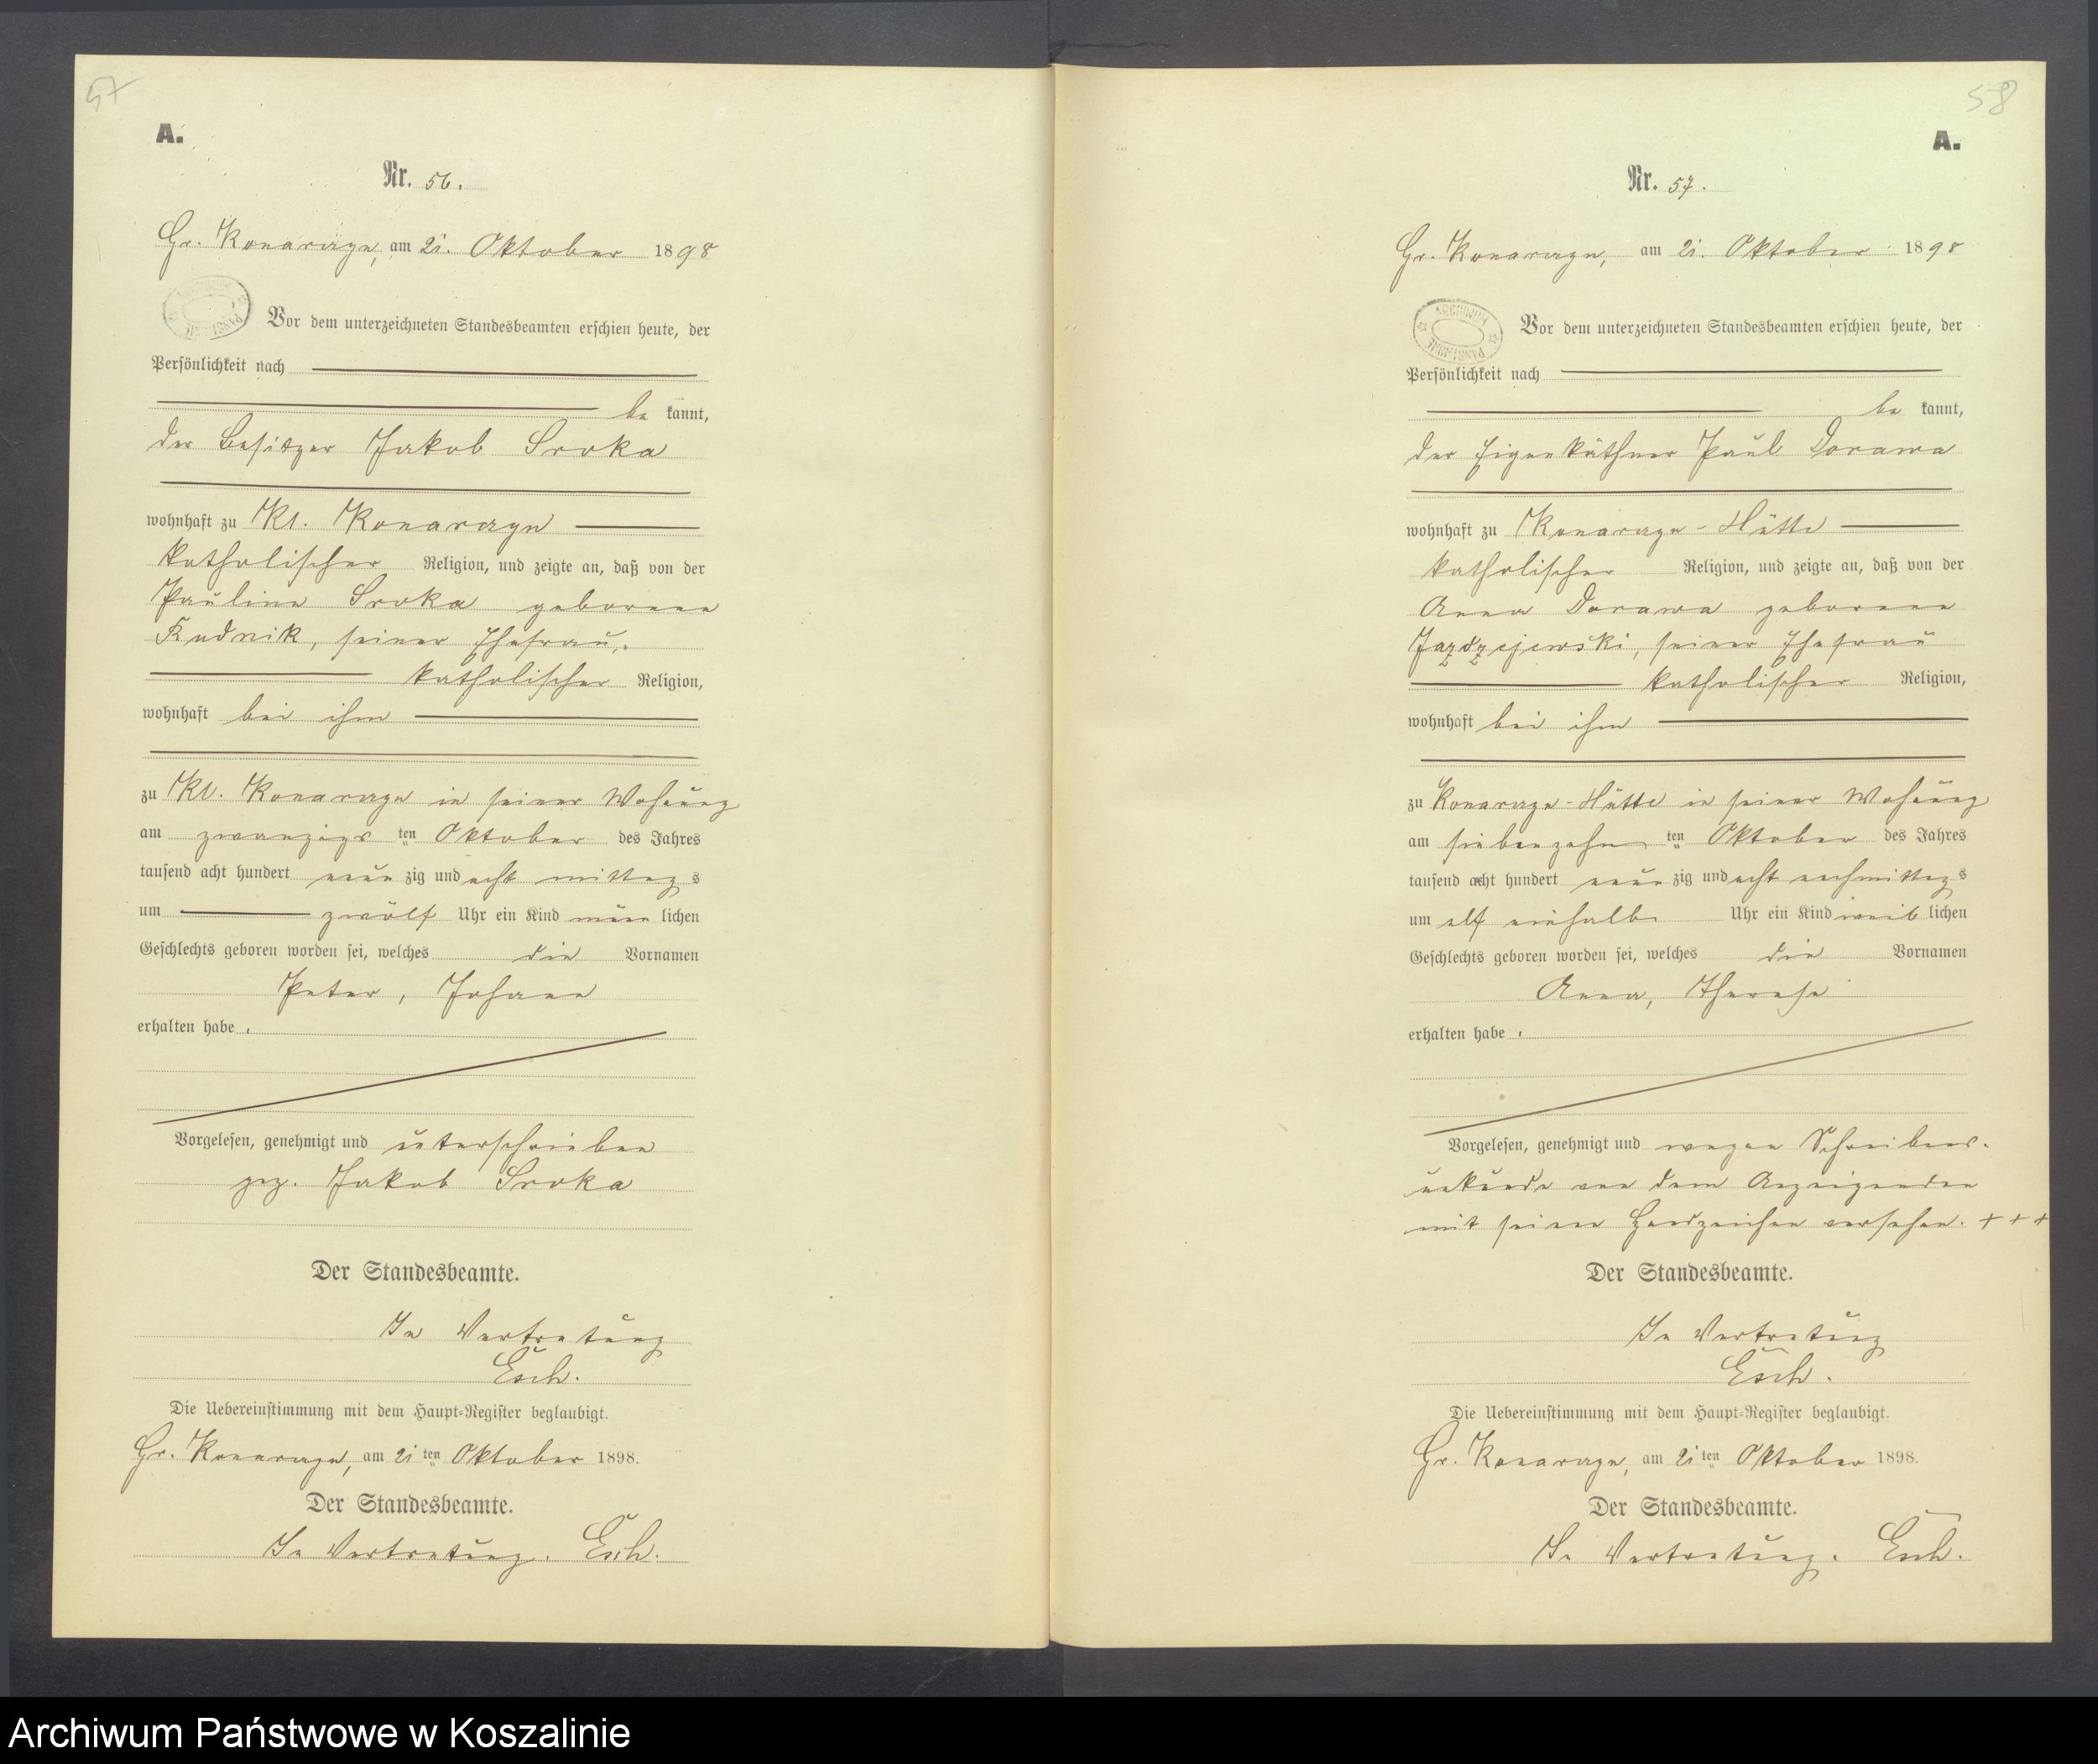 57
A.
Nr. 56.
Gr. Konarczyn, am 21. Oktober 1898
Vor dem unterzeichneten Standesbeamten erschien heute, der
Persönlichkeit nach
be kannt,
der Besitzer Jakob Sroka
wohnhaft zu Kl. Konarczyn
katholischer Religion, und zeigte an, daß von der
Pauline Sroka geborenen
Rudnik, seiner Ehefrau,
katholischer Religion,
wohnhaft bei ihm
zu Kl. Konarczyn in seiner Wohnung
am zwanzigs ten Oktober des Jahres
tausend acht hundert neun zig und acht mittags
um zwölf Uhr ein Kind männ lichen
Geschlechts geboren worden sei, welches die Vornamen
Peter, Johann
erhalten habe.
Vorgelesen, genehmigt und unterschrieben
gez. Jakob Sroka
Der Standesbeamte.
In Vertretung
Esch.
Die Uebereinstimmung mit dem Haupt-Register beglaubigt.
Gr. Konarczyn, am 21 ten Oktober 1898.
Der Standesbeamte.
In Vertretung. Esch.
58
A.
Nr. 57.
Gr. Konarczyn, am 21. Oktober 1898
ARCHIWUM PAŃSTWOWE
Vor dem unterzeichneten Standesbeamten erschien heute, der
Persönlichkeit nach
be kannt,
der Eigenkäthner Paul Dorawa
wohnhaft zu Konarczyn-Hütte
katholischer Religion, und zeigte an, daß von der
Anna Dorawa geborenen
Jazdzejewski, seiner Ehefrau
katholischer Religion,
wohnhaft bei ihm
zu Konarczyn-Hütte in seiner Wohnung
am siebenzehn ten Oktober des Jahres
tausend acht hundert neun zig und acht nachmittags
um elf einhalb Uhr ein Kind weib lichen
Geschlechts geboren worden sei, welches die Vornamen
Anna, Therese
erhalten habe.
Vorgelesen, genehmigt und wegen Schreibens-
unkunde von dem Anzeigenden
mit seinem Handzeichen versehen. + + +
Der Standesbeamte.
In Vertretung
Esch.
Die Uebereinstimmung mit dem Haupt-Register beglaubigt.
Gr. Konarczyn, am 21 ten Oktober 1898.
Der Standesbeamte.
In Vertretung. Esch.
Archiwum Państwowe w Koszalinie